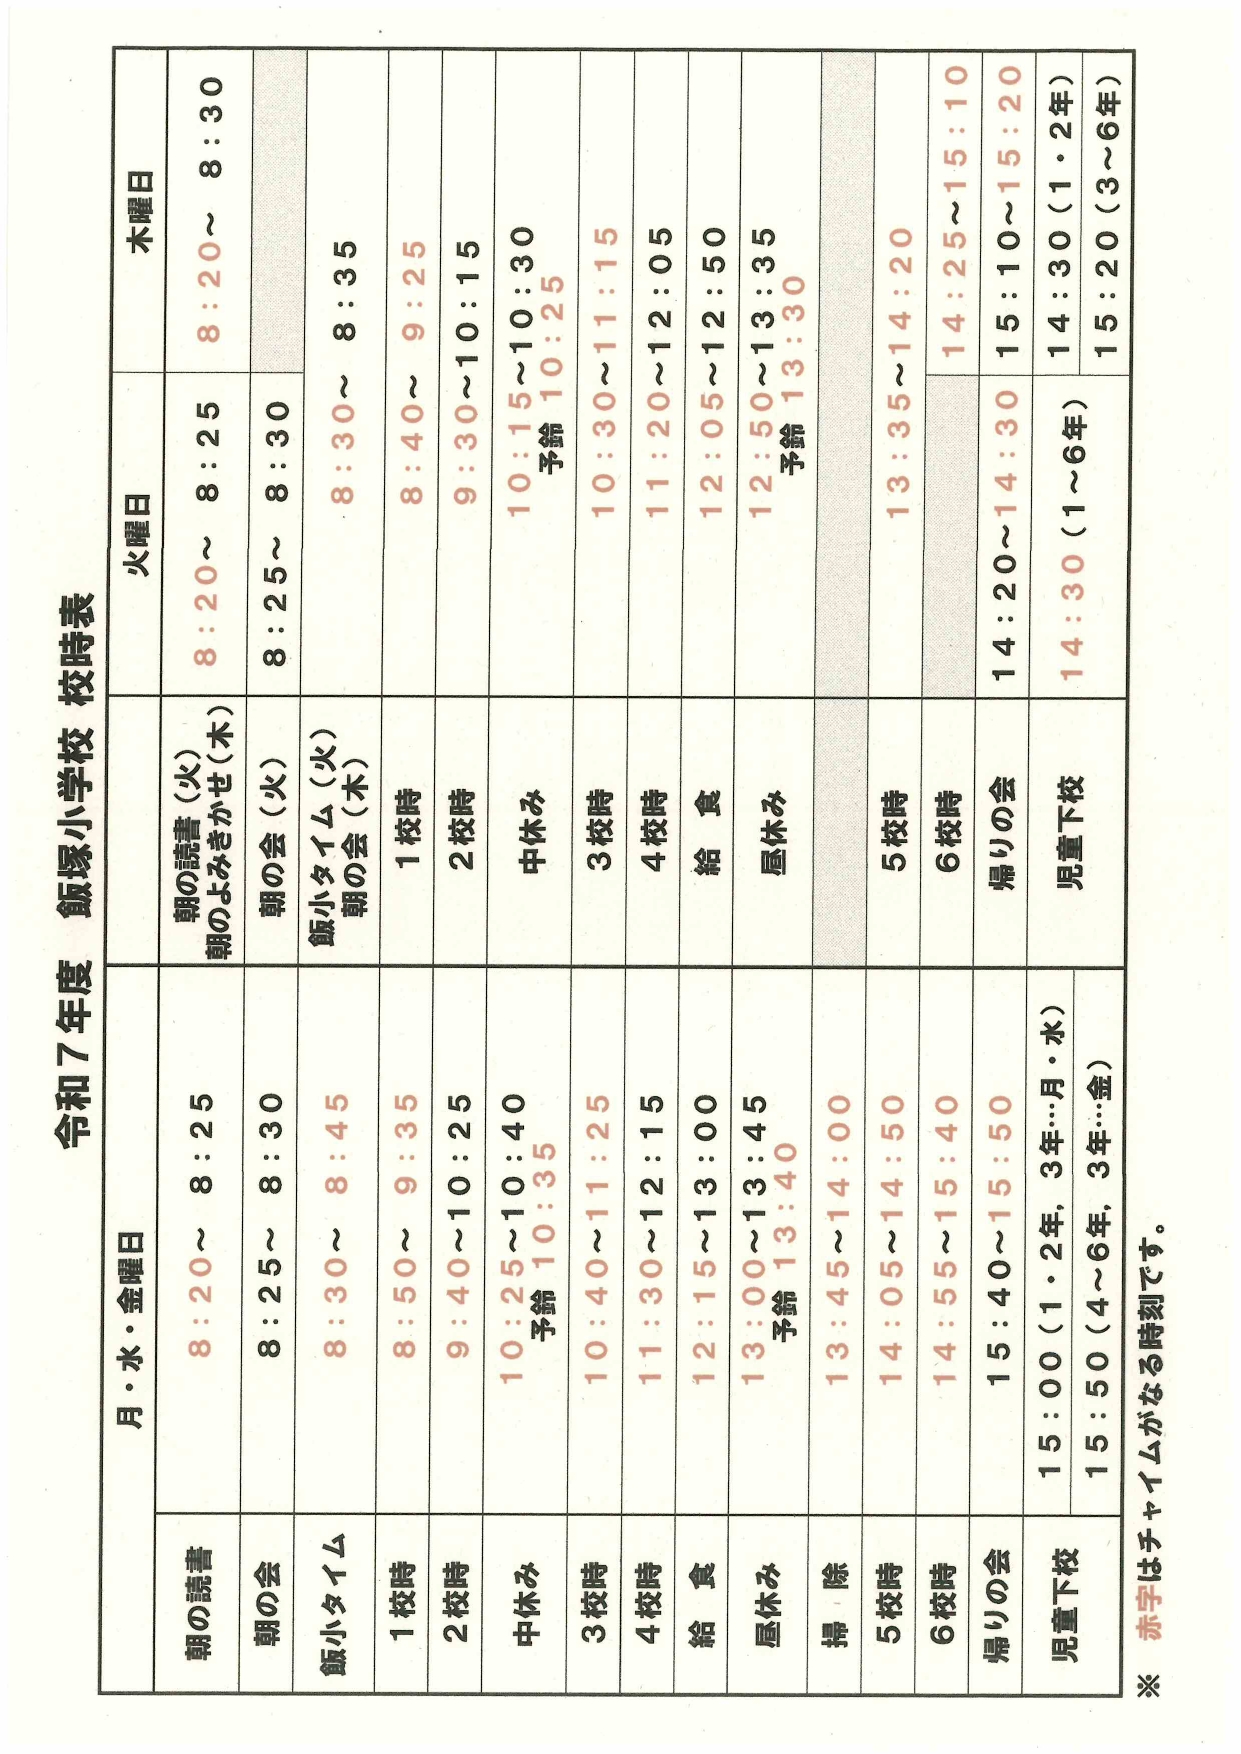 令和7年度　飯塚小学校 校時表
月・水・金曜日
火曜日
木曜日
朝の読書
8：20～ 8：25
朝の読書（火）
朝のよみきかせ（木）
8：20～ 8：25
8：20～ 8：30
朝の会
8：25～ 8：30
朝の会（火）
8：25～ 8：30
飯小タイム
8：30～ 8：45
飯小タイム（火）
朝の会（木）
8：30～ 8：35
1校時
8：50～ 9：35
1校時
8：40～ 9：25
2校時
9：40～10：25
2校時
9：30～10：15
中休み
10：25～10：40
予鈴 10：35
中休み
10：15～10：30
予鈴 10：25
3校時
10：40～11：25
3校時
10：30～11：15
4校時
11：30～12：15
4校時
11：20～12：05
給　食
12：15～13：00
給　食
12：05～12：50
昼休み
13：00～13：45
予鈴 13：40
昼休み
12：50～13：35
予鈴 13：30
掃　除
13：45～14：00
5校時
14：05～14：50
5校時
13：35～14：20
6校時
14：55～15：40
6校時
14：25～15：10
帰りの会
15：40～15：50
帰りの会
14：20～14：30
15：10～15：20
児童下校
15：00（1・2年，3年…月・水）
15：50（4～6年，3年…金）
児童下校
14：30（1～6年）
14：30（1・2年）
15：20（3～6年）
※　赤字はチャイムがなる時刻です。